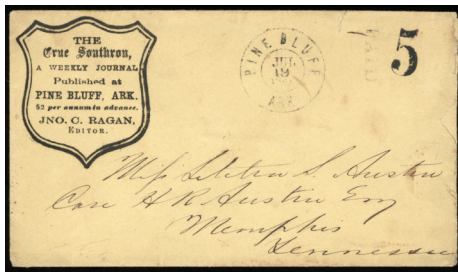 THE
True Southron,
A WEEKLY JOURNAL
Published at
PINE BLUFF, ARK.
$2 per annum in advance.
JNO. C. RAGAN,
EDITOR.
PINE BLUFF
JUL
19
ARK.
PAID
5
Miss S. Austin
Care H R Austin Esq
Memphis
Tennessee